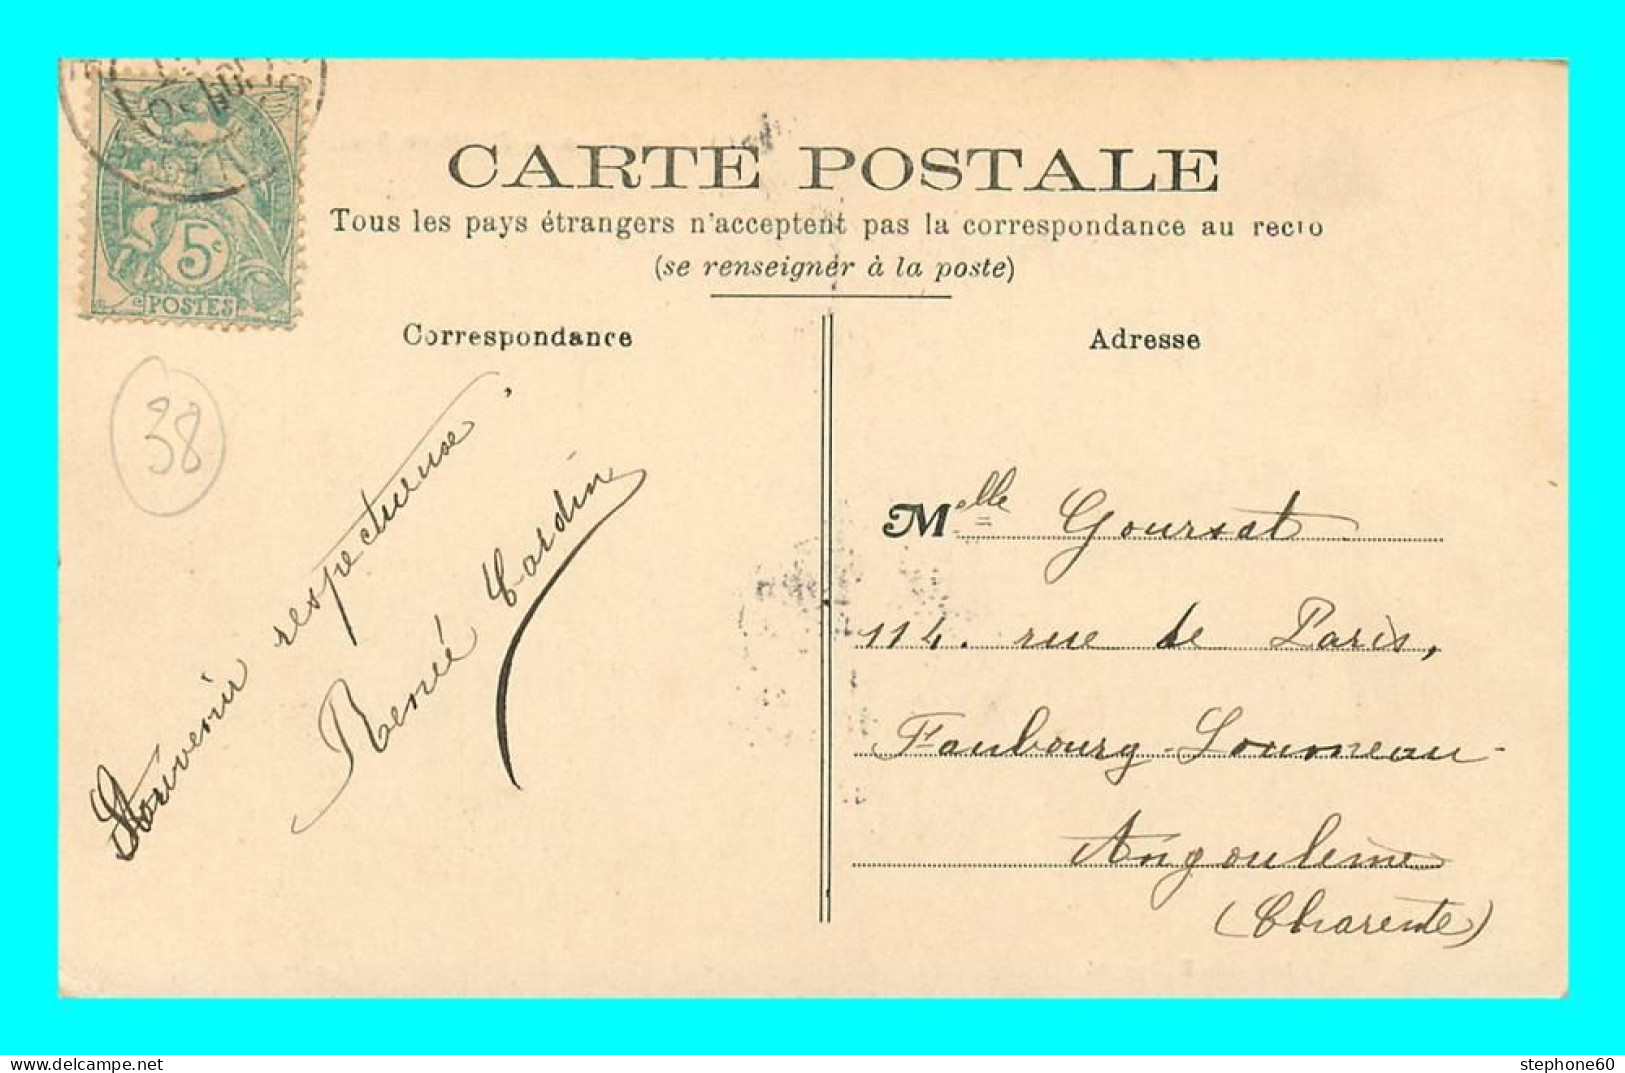 CARTE POSTALE
Tous les pays étrangers n'acceptent pas la correspondance au recto
(se renseigner à la poste)
5c
POSTES
Correspondance
Adresse
38
Souvenir respectueuse.
René Cardin
Melle Goursat
114. rue de Paris,
Faubourg-Loumeau-
Angoulême
(Charente)
stephone60